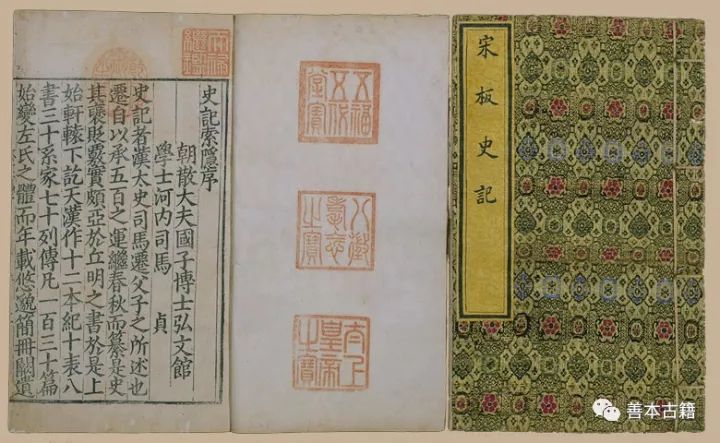 宋板史記
五福
五代
堂寶
八徵
耄念
之寶
太上
皇帝
之寶
天祿
繼鑑
史記索隱序
朝散大夫國子博士弘文館
學士河内司馬 貞
史記者漢太史司馬遷父子之所述也
遷自以承五百之運繼春秋而纂是史
其襃貶覈實頗亞於丘明之書於是上
始軒轅下訖天漢作十二本紀十表八
書三十系家七十列傳凡一百三十篇
始變左氏之體而年載悠邈簡冊闕遺
善本古籍